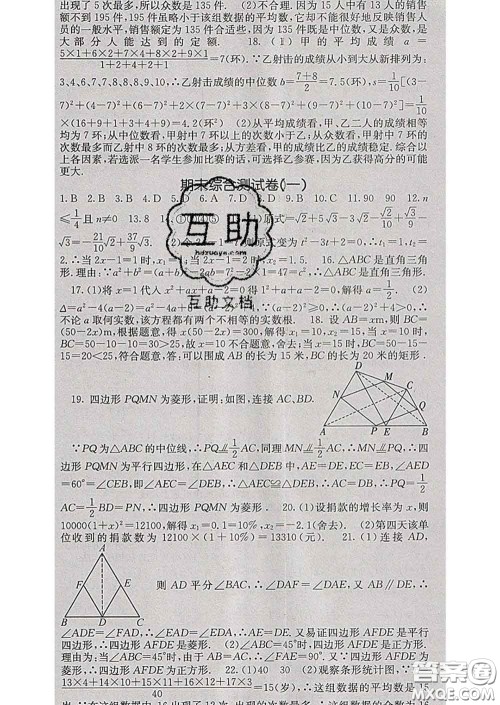 出现了5次最多,所以众数是135件. (2)不合理. 因为15人中有13人的销售
额不到195件,195件虽略小于该组数据的平均数,它却不能反映销售人
员的一般水平,销售额定为135件合适些,因为135件既是中位数,又是众数,是
大部分人能达到的定额. 18. (1)甲的平均成绩a=
5×1+6×2+7×4+8×2+9×1
1+2+4+2+1 =7(环). ∵乙射击成绩从小到大从新排列为:
3、4、6、7、7、8、8、8、9、10,∴乙射击成绩的中位数b=7+8/2=7.5(环),s²=1/10[(3
-7)²+(4-7)²+(6-7)²+2×(7-7)²+3×(8-7)²+(9-7)²+(10-7)²]=1/10
×(16+9+1+3+4+9)=4.2(环²) (2)从平均成绩看,甲、乙二人的成绩相等
均为7环;从中位数看,甲射中7环以上的次数小于乙;从众数看,甲射中7
环的次数最多而乙射中8环的次数最多;从方差看,甲的成绩比乙的成绩稳定. 综合以
上各因素,若选派一名学生参加比赛的话,可选择乙参赛,因为乙获得高分的可能
更大.
期末综合测试卷(一)
1. B 2. B 3. D 4. D 5. D 6. A 7. D 8. C 9. B 10. C 11. 90 12. n
≤1/4且n≠0 13. 8 14.
互助
hdzuoye.com
互助文档
=2. 当2x-1=1时,
形. 理由:∵a²+b²= ∴△ABC是直角三角形.
17. (1)将x=1代入x²+ax+a-2=0得1+a+a-2=0,解得 (2)
△=a²-4(a-2)=a²-4a+8=(a-2)²+4,∵(a-2)²≥0,∴(a-2)²+4>0,∴
不论a取何实数,该方程都有两个不相等的实数根. 18. 设AB=xm,则BC=
(50-2x)m,根据题意,得x(50-2x)=300,解得x₁=10,x₂=15,当x=10时,
BC=50-10-10=30>25,故x=10不合题意,舍去;当x=15时,BC=50-15
-15=20<25,符合题意,答:可以围成AB的长为15米,BC长为20米的矩形.
19. 四边形PQMN为菱形,证明:如图,连接AC、BD.
D M C N Q A P E B
∵PQ为△ABC的中位线,∴PQ⫽1/2AC,同理MN⫽1/2AC. ∴MN⫽PQ,∴四
边形PQMN为平行四边形,在△AEC和△DEB中,AE=DE,EC=EB,∠AED
=60°=∠CEB,即∠AEC=∠DEB. ∴△AEC≌△DEB. ∴AC=BD. ∴PQ=
1/2AC=1/2BD=PN,∴四边形PQMN为菱形. 20. (1)设捐款的增长率为x,则
10000(1+x)²=12100,解得x₁=0.1=10%,x₂=-2.1(舍去). (2)第四天该单
位收到的捐款数为12100×(1+10%)=13310(元). 21. (1)连接AD,
A F E B D C
则AD平分∠BAC,∴∠DAF=∠DAE,∴
∠ADE=∠FAD,∴∠EAD=∠ADE,∴AE=DE. 又易证四边形AFDE是平行
四边形,∴四边形AFDE是菱形. (2)当△ABC为直角三角形时,AFDE是正方形.
理由为:当△ABC为直角时,由于AB=AC,∴∠FAE=90°. 又∵四边形AFDE为
菱形,∴四边形AFDE为正方形. 22. (1)40 30 (2)观察条形统计图,∵
13×4+14×10+15×11+16×12+17×3
40 =15(岁),∴这组数据的平均数是15
答案圈
MXQE.COM